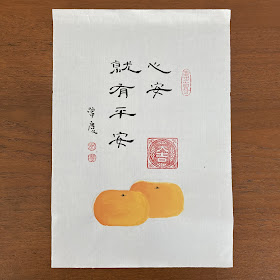 心安
就有平安
大吉